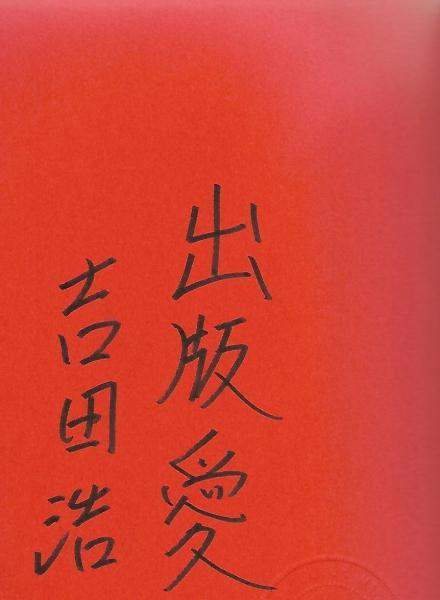 出版愛
吉田浩